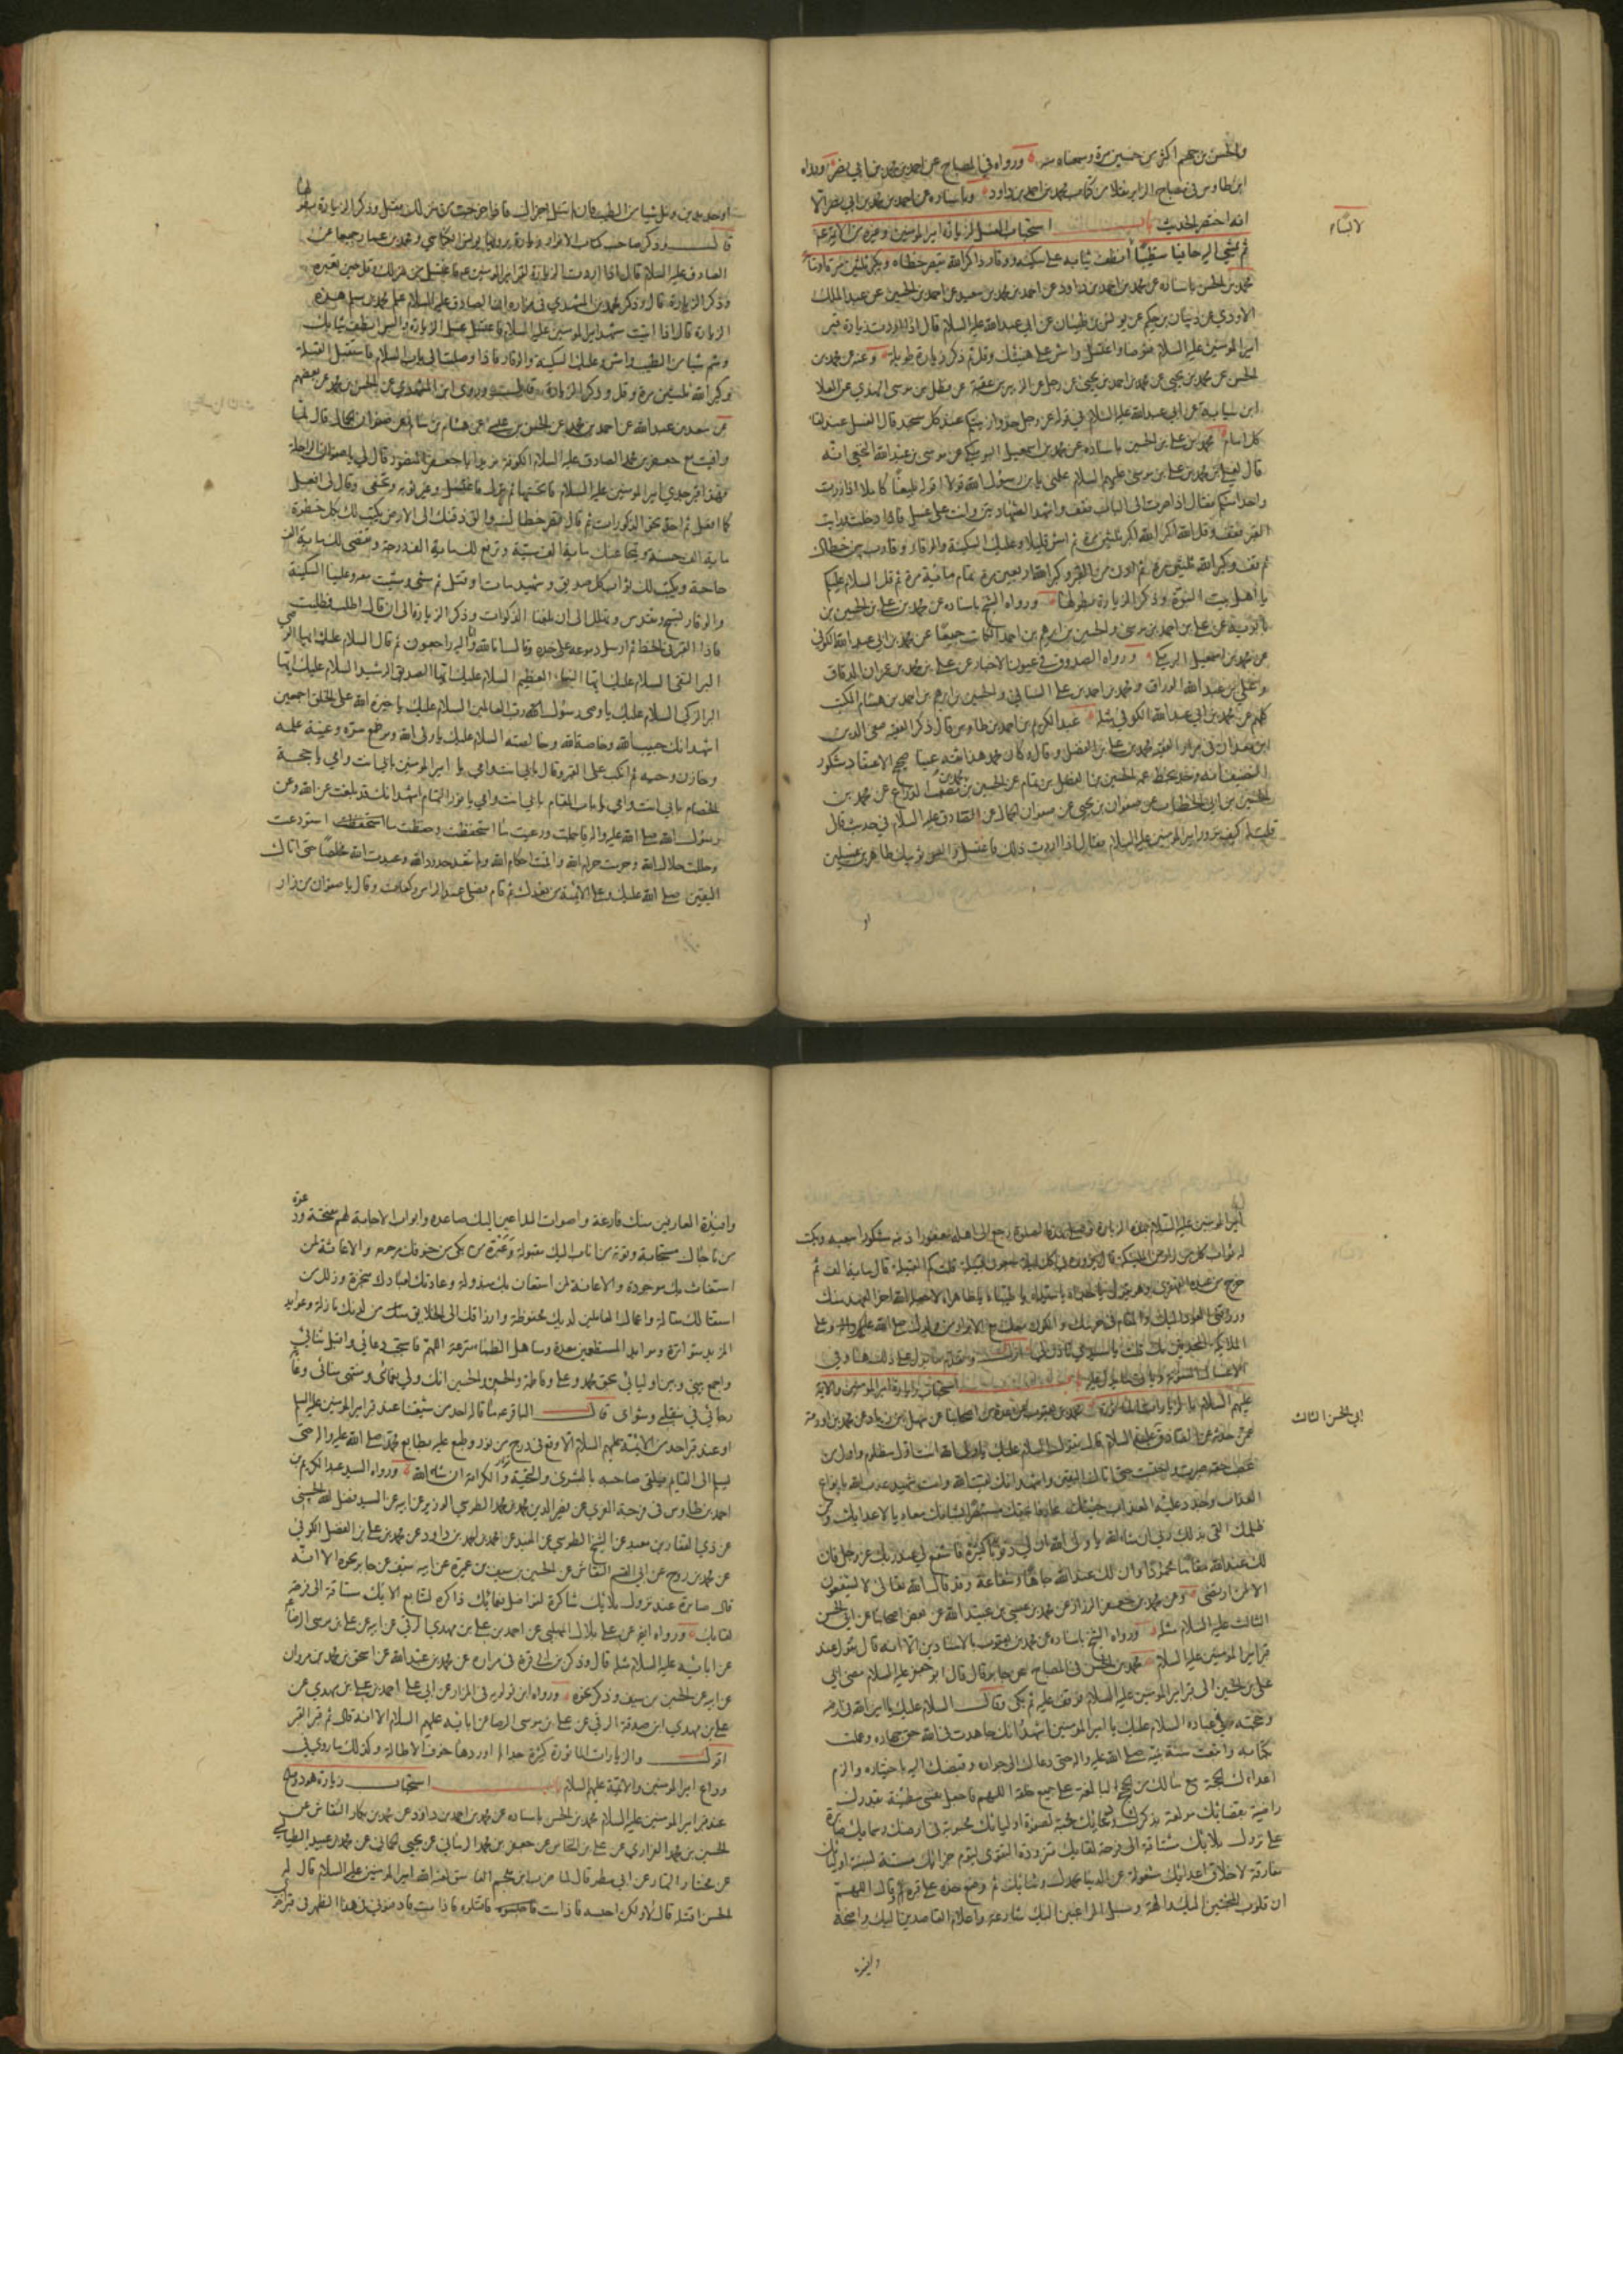 والحسن بن جهم اكثر من خمسين مرة وسمعناه منه ورواه في المصباح عن احمد بن محمد بن ابي نصر ورواه
ابن طاوس في مصباح الزاير نقلا من كتاب محمد بن احمد بن داود وباسناده عن احمد بن محمد بن ابي نصر الا
انه اختصر الحديث باب استحباب الغسل لزيارة امير المؤمنين وغيره من الائمة ع
ثم يمشي اليه حافيا متطيبا انظف ثيابه على سكينة ووقار ذاكرا لله بقصر خطاه ويكبر ثلثين مرة
محمد بن الحسن باسناده عن محمد بن احمد بن داود عن احمد بن محمد بن سعيد عن احمد بن الحسين عن عبد الملك
الاودي عن ذبيان بن حكيم عن يونس بن ظبيان عن ابي عبد الله عليه السلام قال اذا اردت زيارة قبر
امير المؤمنين عليه السلام فتوضا واغتسل وامش على هينتك وقل ثم ذكر زيارة طويلة وعنه عن محمد بن
الحسن عن محمد بن يحيى عن محمد بن احمد بن يحيى عن رجل عن الزبير بن عقبة عن فضل بن موسى النهدي عن العلا
ابن سيابة عن ابي عبد الله عليه السلام في قوله عز وجل خذوا زينتكم عند كل مسجد قال الغسل عند لقاء
كل امام محمد بن علي بن الحسين باسناده عن محمد بن اسمعيل البرمكي عن موسى بن عبد الله النخعي انه
قال لعلي بن محمد بن علي بن موسى عليهم السلام علمني يا ابن رسول الله قولا اقوله بليغا كاملا اذا زرت
واحدا منكم فقال اذا صرت الى الباب فقف واشهد الشهادتين وانت على غسل فاذا دخلت ورايت
القبر فقف وقل الله اكبر الله اكبر ثلثين مرة ثم امش قليلا وعليك السكينة والوقار وقارب بين خطاك
ثم قف وكبر الله ثلثين مرة ثم ادن من القبر وكبر الله اربعين مرة تمام مائة مرة ثم قل السلام عليكم
يا اهل بيت النبوة وذكر الزيارة بطولها ورواه الشيخ باسناده عن محمد بن علي بن الحسين بن
بابويه عن علي بن احمد بن موسى والحسين بن ابرهيم بن احمد الكاتب جميعا عن محمد بن ابي عبد الله الكوفي
عن محمد بن اسمعيل البرمكي ورواه الصدوق في عيون الاخبار عن علي بن محمد بن عمران الدقاق
وعلي بن عبد الله الوراق ومحمد بن احمد بن علي السناني والحسين بن ابرهيم بن احمد بن هشام المكتب
كلهم عن محمد بن ابي عبد الله الكوفي مثله عبد الكريم بن احمد بن طاوس قال ذكر الفقيه صفي الدين
الحسين بن ابي الخطاب عن صفوان بن يحيى عن صفوان الجمال عن الصادق عليه السلام في حديث قال
قلت له كيف نزور امير المؤمنين عليه السلام فقال اذا اردت ذلك فاغتسل والبس ثوبين طاهرين غسيلين
او
لا النساء
قالـــــ وذكر صاحب كتاب الانوار
الصادق عليه السلام قال اذا اردت الزيارة لقبر امير المؤمنين ع فاغتسل
وذكر الزيارة قال وذكر محمد بن المشهدي في مزاره ان الصادق عليه السلام علم محمد بن مسلم هذه
الزيارة قال اذا اتيت مشهد امير المؤمنين عليه السلام فاغتسل غسل الزيارة والبس انظف ثيابك
وشم شيا من الطيب وامش وعليك السكينة والوقار فاذا وصلت الى باب السلام فاستقبل القبلة
وكبر الله ثلثين مرة وقل وذكر الزيارة قال وروى ابن المشهدي عن الحسن بن محمد عن بعضهم
عن سعد بن عبد الله عن احمد بن محمد عن الحسن بن علي عن هشام بن سالم عن صفوان الجمال قال لما
وافيت مع جعفر بن محمد الصادق عليه السلام الكوفة يريد ابا جعفر المنصور قال لي يا صفوان انخ الراحلة
فهذا قبر جدي امير المؤمنين عليه السلام فانختها ثم نزل فاغتسل وغير ثوبه وتحفى وقال لي افعل
كما افعل ثم اخذ نحو الذكوات ثم قال لي قصر خطاك والق ذقنك الى الارض يكتب لك بكل خطوة
مائة الف حسنة ويمحا عنك مائة الف سيئة وترفع لك مائة الف درجة وتقضى لك مائة الف
حاجة ويكتب لك ثواب كل صديق وشهيد مات او قتل ثم مشى ومشيت معه وعلينا السكينة
والوقار نسبح ونقدس ونهلل الى ان بلغنا الذكوات وذكر الزيارة الى ان قال اطلب فطلبت
فاذا القبر في الخط ثم ارسل دموعه على خده وقال انا لله وانا اليه راجعون ثم قال السلام عليك ايها الوصي
البر التقي السلام عليك ايها النبا العظيم السلام عليك ايها الصديق الرشيد السلام عليك ايها
البر الزكي السلام عليك يا وصي رسول رب العالمين السلام عليك يا خيرة الله على الخلق اجمعين
اشهد انك حبيب الله وخاصة الله وخالصته السلام عليك يا ولي الله وموضع سره وعيبة علمه
وخازن وحيه ثم انكب على القبر وقال بابي انت وامي يا امير المؤمنين بابي انت وامي يا حجة
الخصام بابي انت وامي يا باب المقام بابي انت وامي يا نور الله التام اشهد انك قد بلغت عن الله وعن
رسول الله صلى الله عليه واله ما حملت ورعيت ما استحفظت وحفظت ما استودعت
وحللت حلال الله وحرمت حرام الله واقمت احكام الله ولم تتعد حدود الله وعبدت الله مخلصا حتى اتاك
اليقين صلى الله عليك وعلى الائمة من بعدك ثم قام فصلى عند الراس ركعات وقال يا صفوان من زار
امير المؤمنين عليه السلام بهذه الزيارة وصلى بهذه الصلوة رجع الى اهله مغفورا ذنبه مشكورا سعيه ويكتب
له ثواب كل من زاره من الملئكة قال يزوره في كل ليلة سبعون قبيلة قلت كم القبيلة قال مائة الف ثم
خرج من عنده القهقرى وهو يقول يا جداه يا سيداه يا طيباه يا طاهراه لا جعله الله اخر العهد منك
ورزقني العود اليك والمقام في حرمك والكون معك ومع الابرار من ولدك صلى الله عليك وعلى
الملئكة المحدقين بك
عليهم السلام بالزيارات الماثورة محمد بن يعقوب عن عدة من اصحابنا عن سهل بن زياد عن محمد بن اورمة
عمن حدثه عن الصادق عليه السلام قال تقول السلام عليك يا ولي الله انت اول مظلوم واول من
غصب حقه صبرت واحتسبت حتى اتاك اليقين واشهد انك لقيت الله وانت شهيد عذب الله قاتلك بانواع
العذاب وجدد عليه العذاب جئتك عارفا بحقك مستبصرا بشانك معاديا لاعدائك ومن
ظلمك القى بذلك ربي ان شاء الله يا ولي الله ان لي ذنوبا كثيرة فاشفع لي عند ربك عز وجل فان
لك عند الله مقاما محمودا وان لك عند الله جاها وشفاعة وقد قال الله تعالى لا يشفعون
الا لمن ارتضى وعن محمد بن جعفر الرزاز عن محمد بن عيسى بن عبيد الله عن بعض اصحابنا عن ابي الحسن
الثالث عليه السلام مثله ورواه الشيخ باسناده عن محمد بن يعقوب بالاسنادين الا انه قال تقول عند
قبر امير المؤمنين عليه السلام محمد بن الحسن في المصباح عن جابر قال قال ابو جعفر عليه السلام مضى ابي
علي بن الحسين الى قبر امير المؤمنين عليه السلام فوقف عليه ثم بكى وقالــــ السلام عليك يا امين الله في ارضه
وحجته على عباده السلام عليك يا امير المؤمنين اشهد انك جاهدت في الله حق جهاده وعملت
بكتابه واتبعت سنة نبيه صلى الله عليه واله حتى دعاك الله الى جواره وقبضك اليه باختياره والزم
اعداءك الحجة مع ما لك من الحجج البالغة على جميع خلقه اللهم فاجعل نفسي مطمئنة بقدرك
راضية بقضائك مولعة بذكرك ودعائك محبة لصفوة اوليائك محبوبة في ارضك وسمائك صابرة
على نزول بلائك مشتاقة الى فرحة لقائك متزودة التقوى ليوم جزائك مستنة بسنة اوليائك
مفارقة لاخلاق اعدائك مشغولة عن الدنيا بحمدك وثنائك ثم وضع خده على قبره ثم قال اللهم
ان قلوب المخبتين اليك والهة وسبل الراغبين اليك شارعة واعلام القاصدين اليك واضحة
وافئدة
ابي الحسن الثالث
وافئدة العارفين منك فازعة واصوات الداعين اليك صاعدة وابواب الاجابة لهم مفتحة ودعوة
من ناجاك مستجابة وتوبة من اناب اليك مقبولة وعبرة من بكى من خوفك مرحومة والاغاثة لمن
استغاث بك موجودة والاعانة لمن استعان بك مبذولة وعداتك لعبادك منجزة وزلل من
استقالك مقالة واعمال العاملين لديك محفوظة وارزاقك الى الخلائق من لدنك نازلة وعوايد
المزيد متواترة وموايد المستطعمين معدة ومناهل الظماء مترعة اللهم فاستجب دعائي واقبل ثنائي
واجمع بيني وبين اوليائي بحق محمد وعلي وفاطمة والحسن والحسين انك ولي نعمائي ومنتهى مناي وغاية
رجائي في منقلبي ومثواي قالــــ الباقر ع ما قاله احد من شيعتنا عند قبر امير المؤمنين عليه السلم
او عند قبر احد من الائمة عليهم السلام الا وقع في درج من نور وطبع عليه بطابع محمد صلى الله عليه واله حتى
يسلم الى القائم فيلقى صاحبه بالبشرى والتحية والكرامة ان شاء الله ورواه السيد عبد الكريم بن
احمد بن طاوس في فرحة الغري عن نصير الدين محمد بن محمد الطوسي الوزير عن ابيه عن السيد فضل الله الحسني
عن ذي الفقار بن معبد عن الشيخ الطوسي عن المفيد عن محمد بن احمد بن داود عن محمد بن علي بن الفضل الكوفي
عن محمد بن روح عن ابي القسم النقاش عن الحسين بن سيف بن عميرة عن ابيه سيف عن جابر نحوه الا انه
قال صابرة عند نزول بلائك شاكرة لفواضل نعمائك ذاكرة لسابغ الائك مشتاقة الى فرحة
لقائك ورواه ايضا عن علي بن بلال المهلبي عن احمد بن علي بن مهدي الرقي عن ابيه عن علي بن موسى الرضا
عن ابائه عليه السلام مثله قال وذكر بن ابي قرة في مزاره عن محمد بن عبد الله عن اسحق بن محمد بن مروان
عن ابيه عن الحسين بن سيف وذكر نحوه ورواه ابن قولويه في المزار عن ابي علي احمد بن علي بن مهدي عن
علي بن مهدي ابن صدقة الرقي عن علي بن موسى الرضا عن ابائه عليهم السلام الا انه قال ثم قبر القبر
اقولـــــ والزيارات الماثورة كثيرة جدا لم اوردها خوف الاطالة وكذلك ما روي في
وداع امير المؤمنين والائمة عليهم السلام باب استحبابــــ زيارة هود وصالح
عند قبر امير المؤمنين عليه السلام محمد بن الحسن باسناده عن محمد بن احمد بن داود عن محمد بن بكار النقاش عن
الحسين بن محمد الفزاري عن علي بن النحاس عن جعفر بن محمد الرماني عن يحيى الحماني عن محمد بن عبيد الطيالسي
عن مختار التمار عن ابي مطر قال لما ضرب ابن ملجم الفاسق لعنه الله امير المؤمنين عليه السلام قال له
الحسن اقتله قال لا ولكن احبسه فاذا مت فاقتلوه فاذا مت فادفنوني في هذا الظهر في قبر